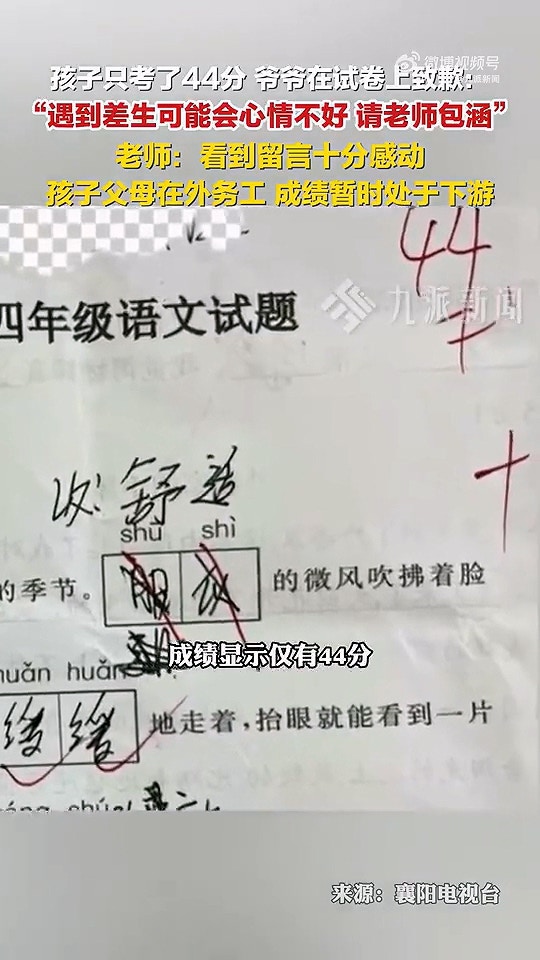 微博视频号
九派新闻
孩子只考了44分 爷爷在试卷上致歉:
“遇到差生可能会心情不好 请老师包涵”
老师：看到留言十分感动
孩子父母在外务工 成绩暂时处于下游
44
九派新闻
四年级语文试题
改: 舒适
shū shì
的季节。
的微风吹拂着脸
成绩显示仅有44分
huǎn huǎn
地走着,抬眼就能看到一片
shú
来源：襄阳电视台